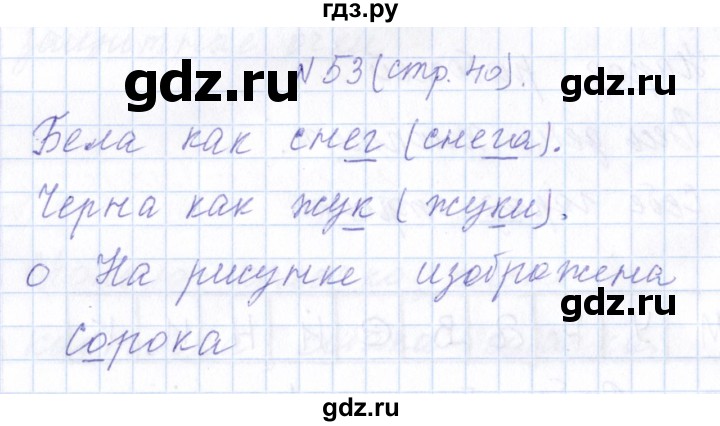 гдз.ру
gdz.ru
N 53 (стр. 40).
gdz.ru
Бела как снег (снега).
Черна как жук (жуки).
о На рисунке изображена
gdz.ru
сорока
gdz.ru